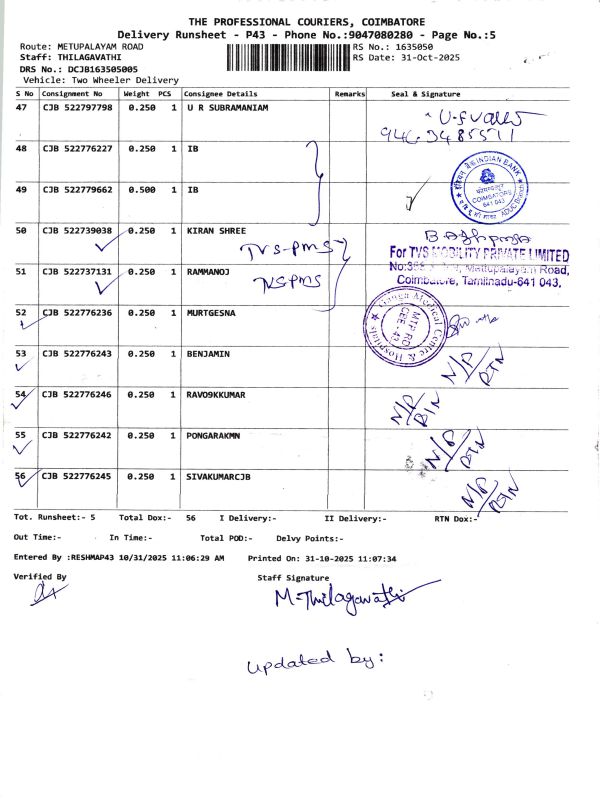 THE PROFESSIONAL COURIERS, COIMBATORE
Delivery Runsheet - P43 - Phone No.:9047080280 - Page No.:5
Route: METUPALAYAM ROAD RS No.: 1635050
Staff: THILAGAVATHI RS Date: 31-Oct-2025
DRS No.: DCJB163505005
Vehicle: Two Wheeler Delivery
S No Consignment No Weight PCS Consignee Details Remarks Seal & Signature
47 CJB 522797798 0.250 1 U R SUBRAMANIAM
48 CJB 522776227 0.250 1 IB
INDIAN BANK
49 CJB 522779662 0.500 1 IB
COIMBATORE
641 043
50 CJB 522739038 0.250 1 KIRAN SHREE
TVS-PMS
For TVS MOBILITY PRIVATE LIMITED
51 CJB 522737131 0.250 1 RAMMANOJ
TVSPMS
Mettupalayam Road,
Coimbatore, Tamilnadu-641 043.
52 CJB 522776236 0.250 1 MURTGESNA
Ganga Medical Centre & Hospitals
MTP RO
53 CJB 522776243 0.250 1 BENJAMIN
N/P RTN
54 CJB 522776246 0.250 1 RAVO9KKUMAR
N/P RTN
55 CJB 522776242 0.250 1 PONGARAKMN
N/P RTN
56 CJB 522776245 0.250 1 SIVAKUMARCJB
N/P RTN
Tot. Runsheet:- 5 Total Dox:- 56 I Delivery:- II Delivery:- RTN Dox:-
Out Time:- In Time:- Total POD:- Delvy Points:-
Entered By :RESHMAP43 10/31/2025 11:06:29 AM Printed On: 31-10-2025 11:07:34
Verified By Staff Signature
M.Thilagavathi
updated by: